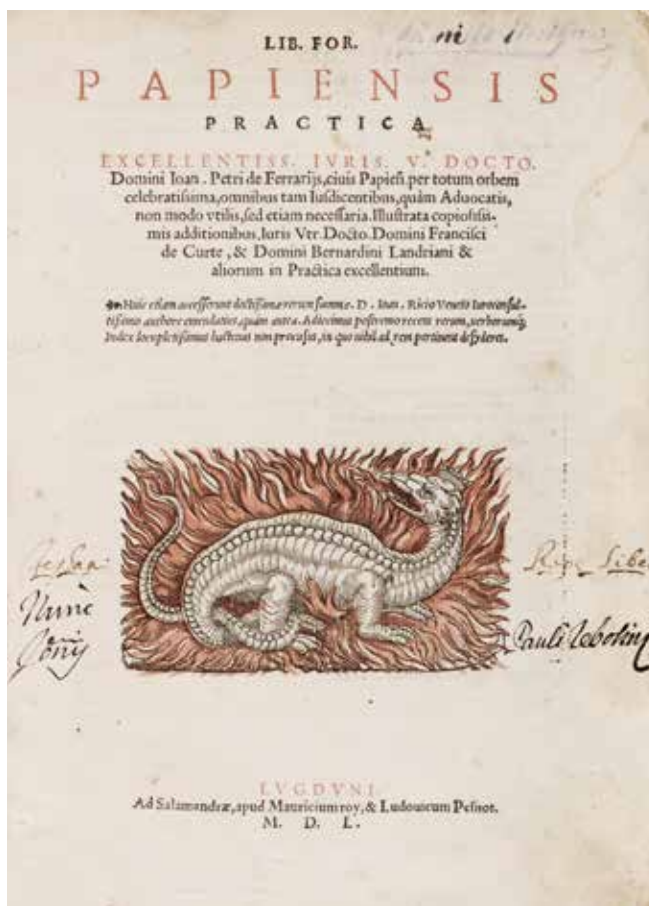 LIB. FOR.
PAPIENSIS
PRACTICA
EXCELLENTISS. IVRIS. V. DOCTO.
Domini Ioan. Petri de Ferrarijs, ciuis Papieñ. per totum orbem
celebratissima, omnibus tam Iusdicentibus, quàm Aduocatis,
non modo vtilis, sed etiam necessaria. Illustrata copiosissi-
mis additionibus, Iuris Vtr. Docto. Domini Francisci
de Curte, & Domini Bernardini Landriani &
aliorum in Practica excellentium.
Huic etiam accesserunt doctissimæ rerum summæ. D. Ioan. Ricio Veneto Iurisconsul-
tissimo authore emendatius, quàm antea. Adiecimus postremo recens rerum, verborumq;
Index locupletissimus hactenus non procusus, in quo nihil ad rem pertinens desyderes.
Nunc
Pauli
LVGDVNI.
Ad Salamandræ, apud Mauricium roy, & Ludouicum Pesnot.
M. D. L.